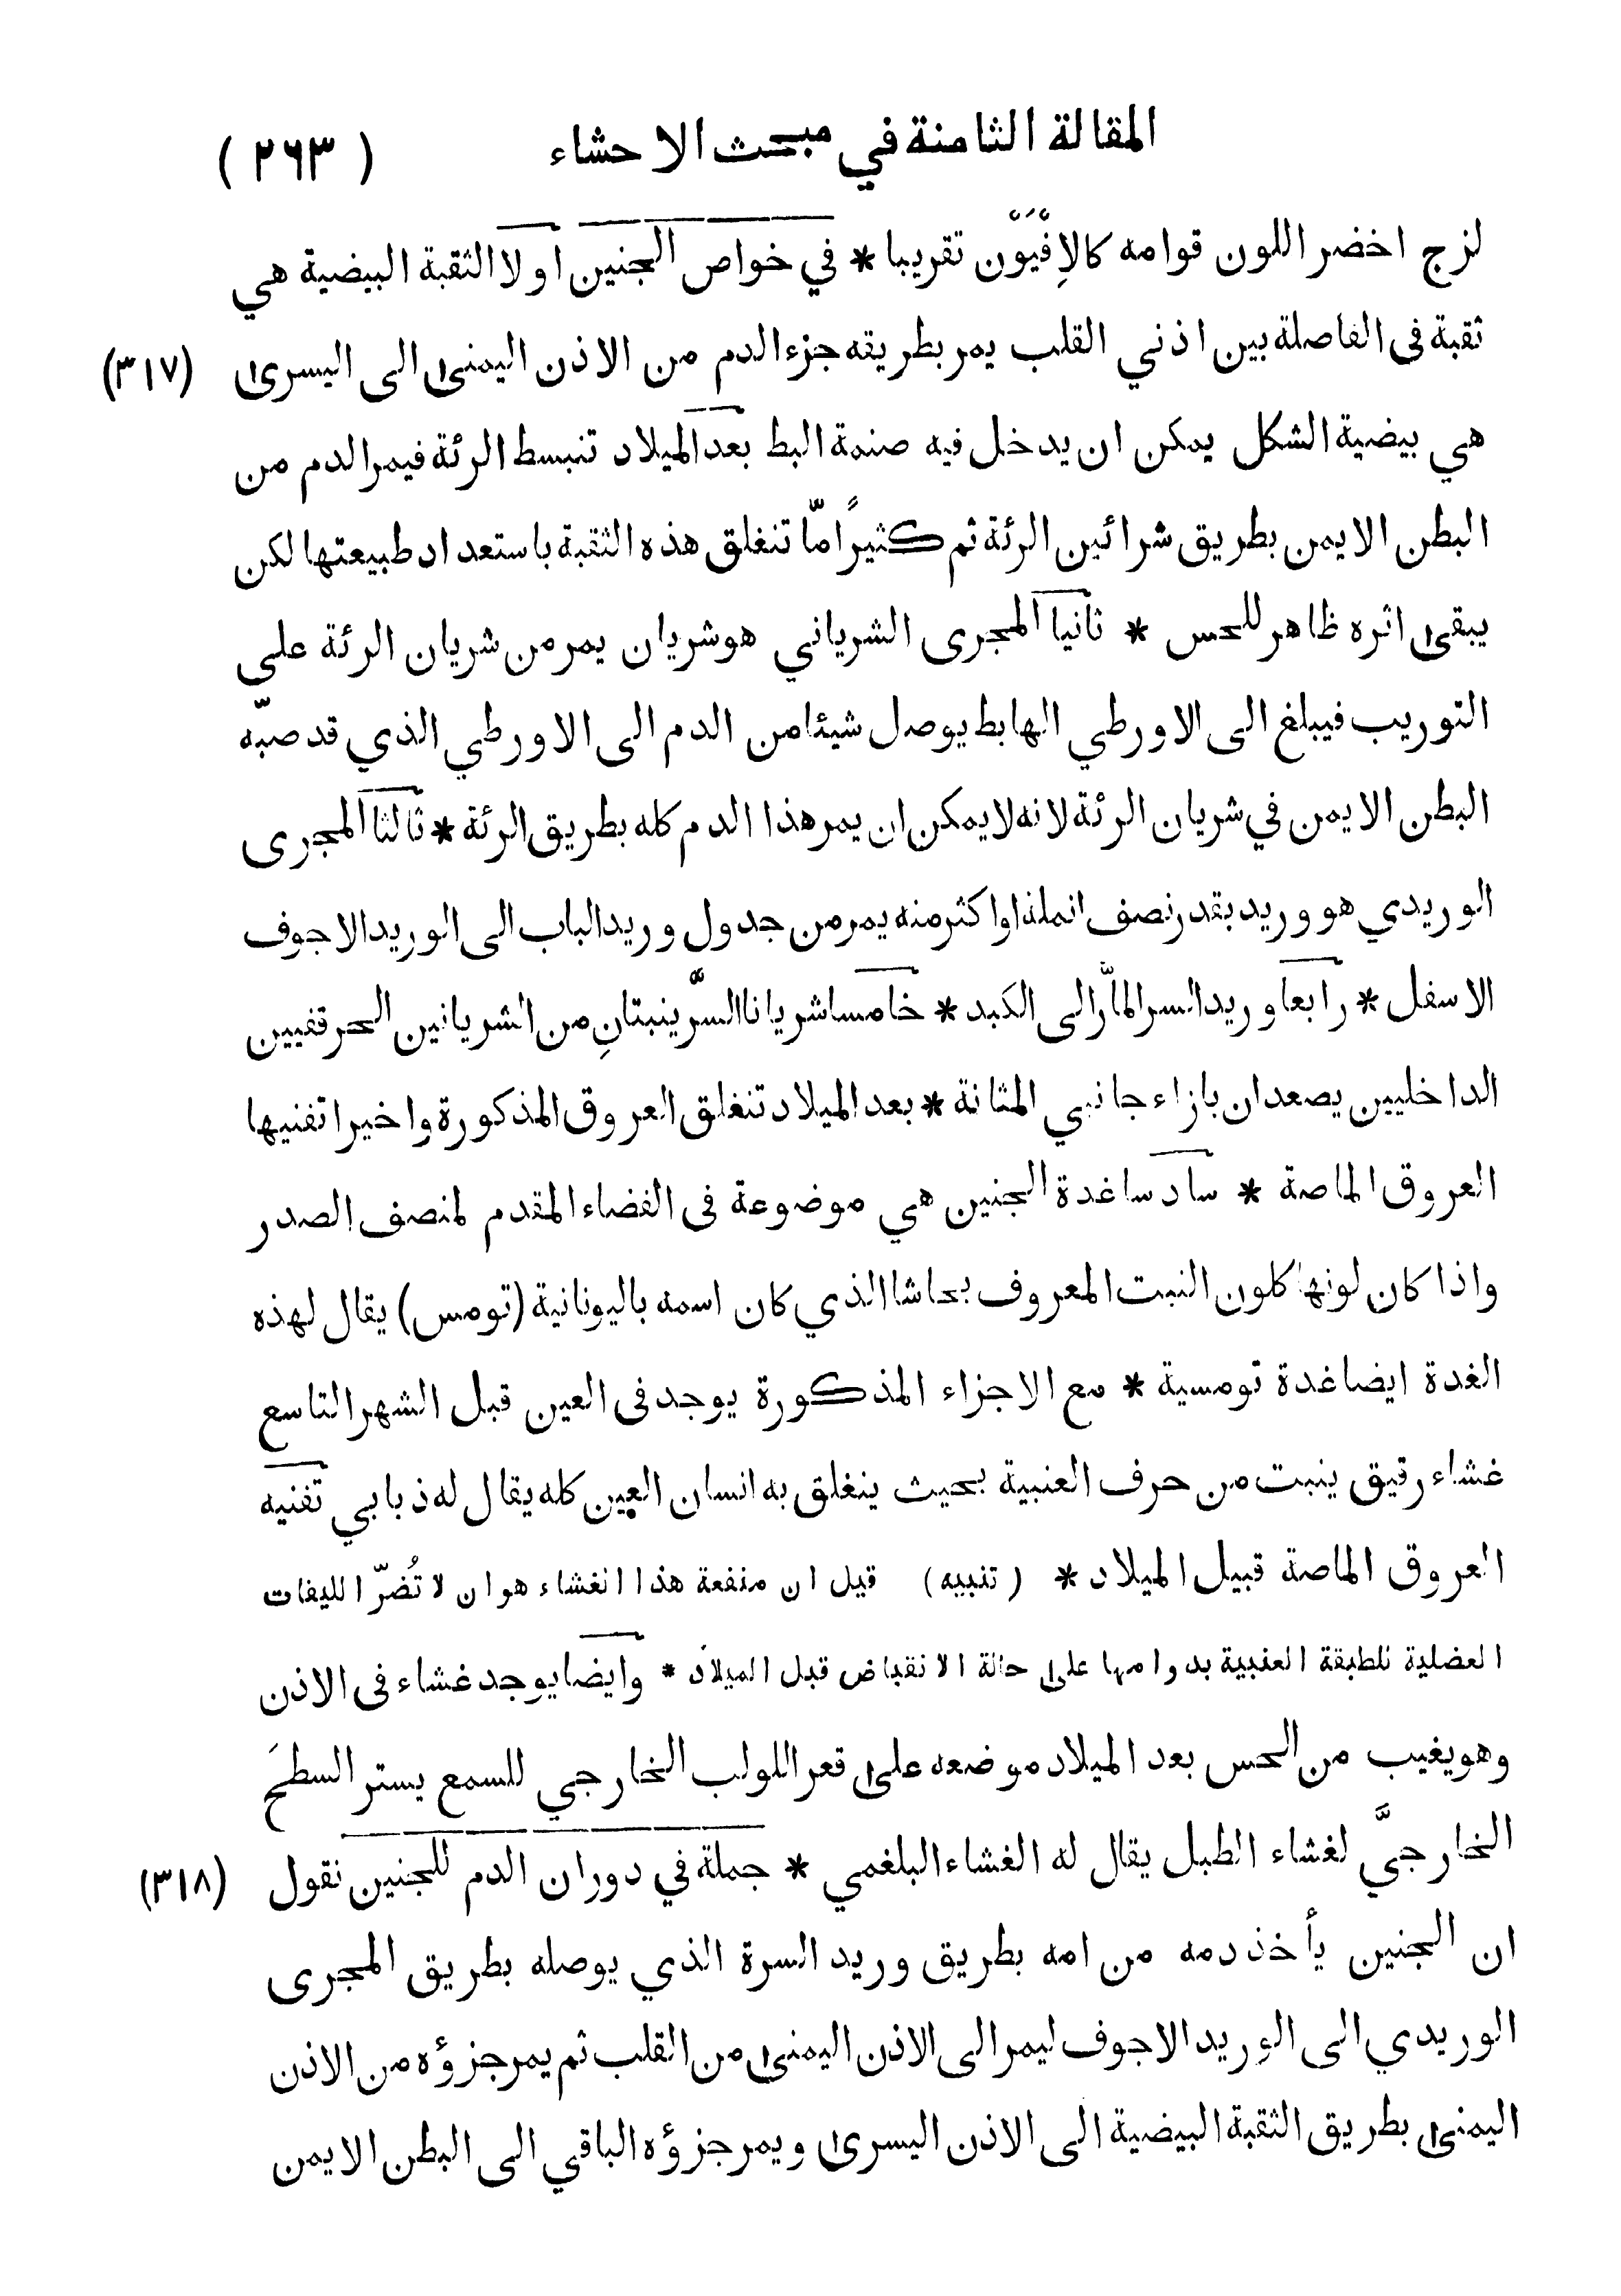 المقالة الثامنة في مبحث الاحشاء (٢٦٣)
لزج اخضر اللون قوامه كالاِفْيُوْن تقريبا * في خواص الجنين اولا الثقبة البيضية هي
ثقبة فى الفاصلة بين اذني القلب يمر بطريقه جزء الدم من الاذن اليمنى الى اليسرى (٣١٧)
هي بيضية الشكل يمكن ان يدخل فيه صنمة البط بعد الميلاد تنبسط الرئة فيمر الدم من
البطن الايمن بطريق شرائين الرئة ثم كثيرًا مّا تنغلق هذه الثقبة باستعداد طبيعتها لكن
يبقى اثره ظاهر للحس * ثانيا المجرى الشرياني هو شريان يمر من شريان الرئة على
التوريب فيبلغ الى الاورطي الهابط يوصل شيئا من الدم الى الاورطي الذي قد صبّه
البطن الايمن في شريان الرئة لانه لا يمكن ان يمر هذا الدم كله بطريق الرئة * ثالثا المجرى
الوريدي هو وريد بقدر نصف انملة او اكثر منه يمر من جدول وريد الباب الى الوريد الاجوف
الاسفل * رابعا وريد السر المارّ الى الكبد * خامسا شريانا السُّر ينبتانِ من الشريانين الحرقفيين
الداخليين يصعدان بازاء جانبي المثانة * بعد الميلاد تنغلق العروق المذكورة واخيرا تفنيها
العروق الماصة * سادسا غدة الجنين هي موضوعة فى الفضاء المقدم لمنصف الصدر
واذا كان لونها كلون النبت المعروف بحاشا الذي كان اسمه باليونانية (تومس) يقال لهذه
الغدة ايضا غدة تومسية * مع الاجزاء المذكورة يوجد فى العين قبل الشهر التاسع
غشاء رقيق ينبت من حرف العنبية بحيث ينغلق به انسان العين كله يقال له ذبابي تفنيه
العروق الماصة قبيل الميلاد * (تنبيه) قيل ان منفعة هذا الغشاء هو ان لا تُضرّ الليفات
العضلية للطبقة العنبية بدوامها على حالة الانقباض قبل الميلاد * وايضا يوجد غشاء فى الاذن
وهو يغيب من الحس بعد الميلاد موضعه على قعر اللولب الخارجي للسمع يستر السطحَ
الخارجيَّ لغشاء الطبل يقال له الغشاء البلغمي * جملة في دوران الدم للجنين نقول (٣١٨)
ان الجنين يأخذ دمه من امه بطريق وريد السرة الذي يوصله بطريق المجرى
الوريدي الى الوريد الاجوف ليمر الى الاذن اليمنى من القلب ثم يمر جزؤه من الاذن
اليمنى بطريق الثقبة البيضية الى الاذن اليسرى ويمر جزؤه الباقي الى البطن الايمن